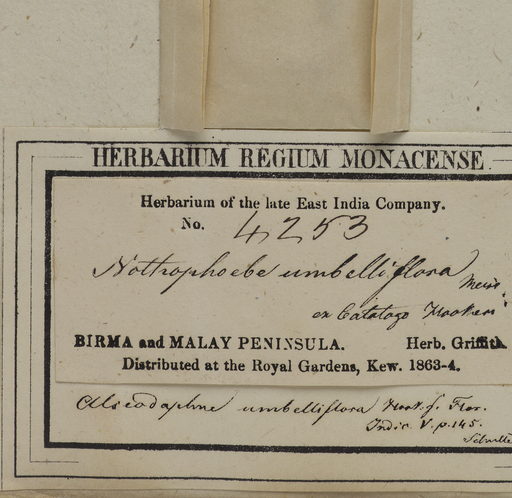 HERBARIUM REGIUM MONACENSE
Herbarium of the late East India Company.
No. 4253
Nothophoebe umbelliflora Meiss.
ex Catalogo Hookeri
BIRMA and MALAY PENINSULA. Herb. Griffith.
Distributed at the Royal Gardens, Kew. 1863-4.
Alseodaphne umbelliflora Hook. f. Flor.
Indic. V. p. 145.